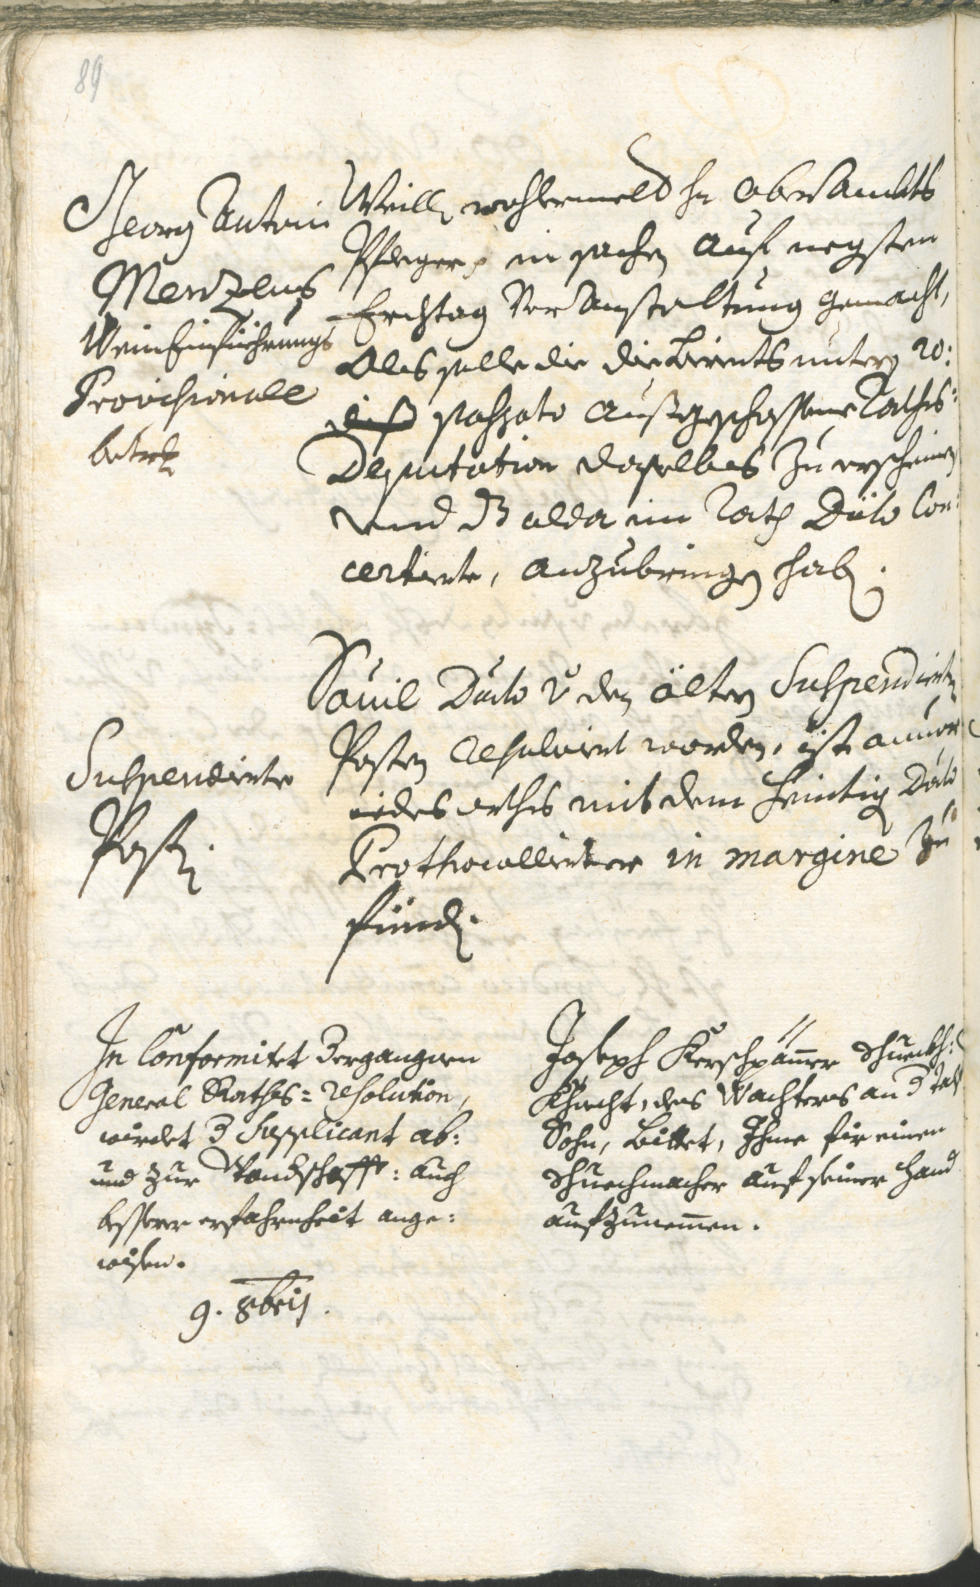 89
Georg Antoni
Menzens
Weineinführungs
Provisionale
betrf.
Weill wohlermelt hr Oberambts
Pfleger in sachen auf negsten
Erchtag Veranstaltung gemacht,
Als solle die diesseits unterm 20:
diß passato außgeschossene Raths-
Deputation daselbs zu erscheinen
und dz alda im Rath Dato Con-
certierte, anzubringen hab.
Suspendirte
Post.
Sovil Dato v den ältern Suspendirten
Posten resolvirt worden, ist anvor
iedes orths mit dem heutig Dato
Prothocollirter in margine zu
find.
In Conformitet Vergangnen
General Raths-resolution,
wirdet d Supplicant ab:
und zur Wandschafft: auch
besserer erfahrenheit ange:
wisen.
9. 8bris.
Joseph Kerschpämer Schuech:
Khnecht, des Wachters an d
Sohn, Bittet, Ihme für einen
Schuechmacher auf seiner Hand
aufzunemmen.